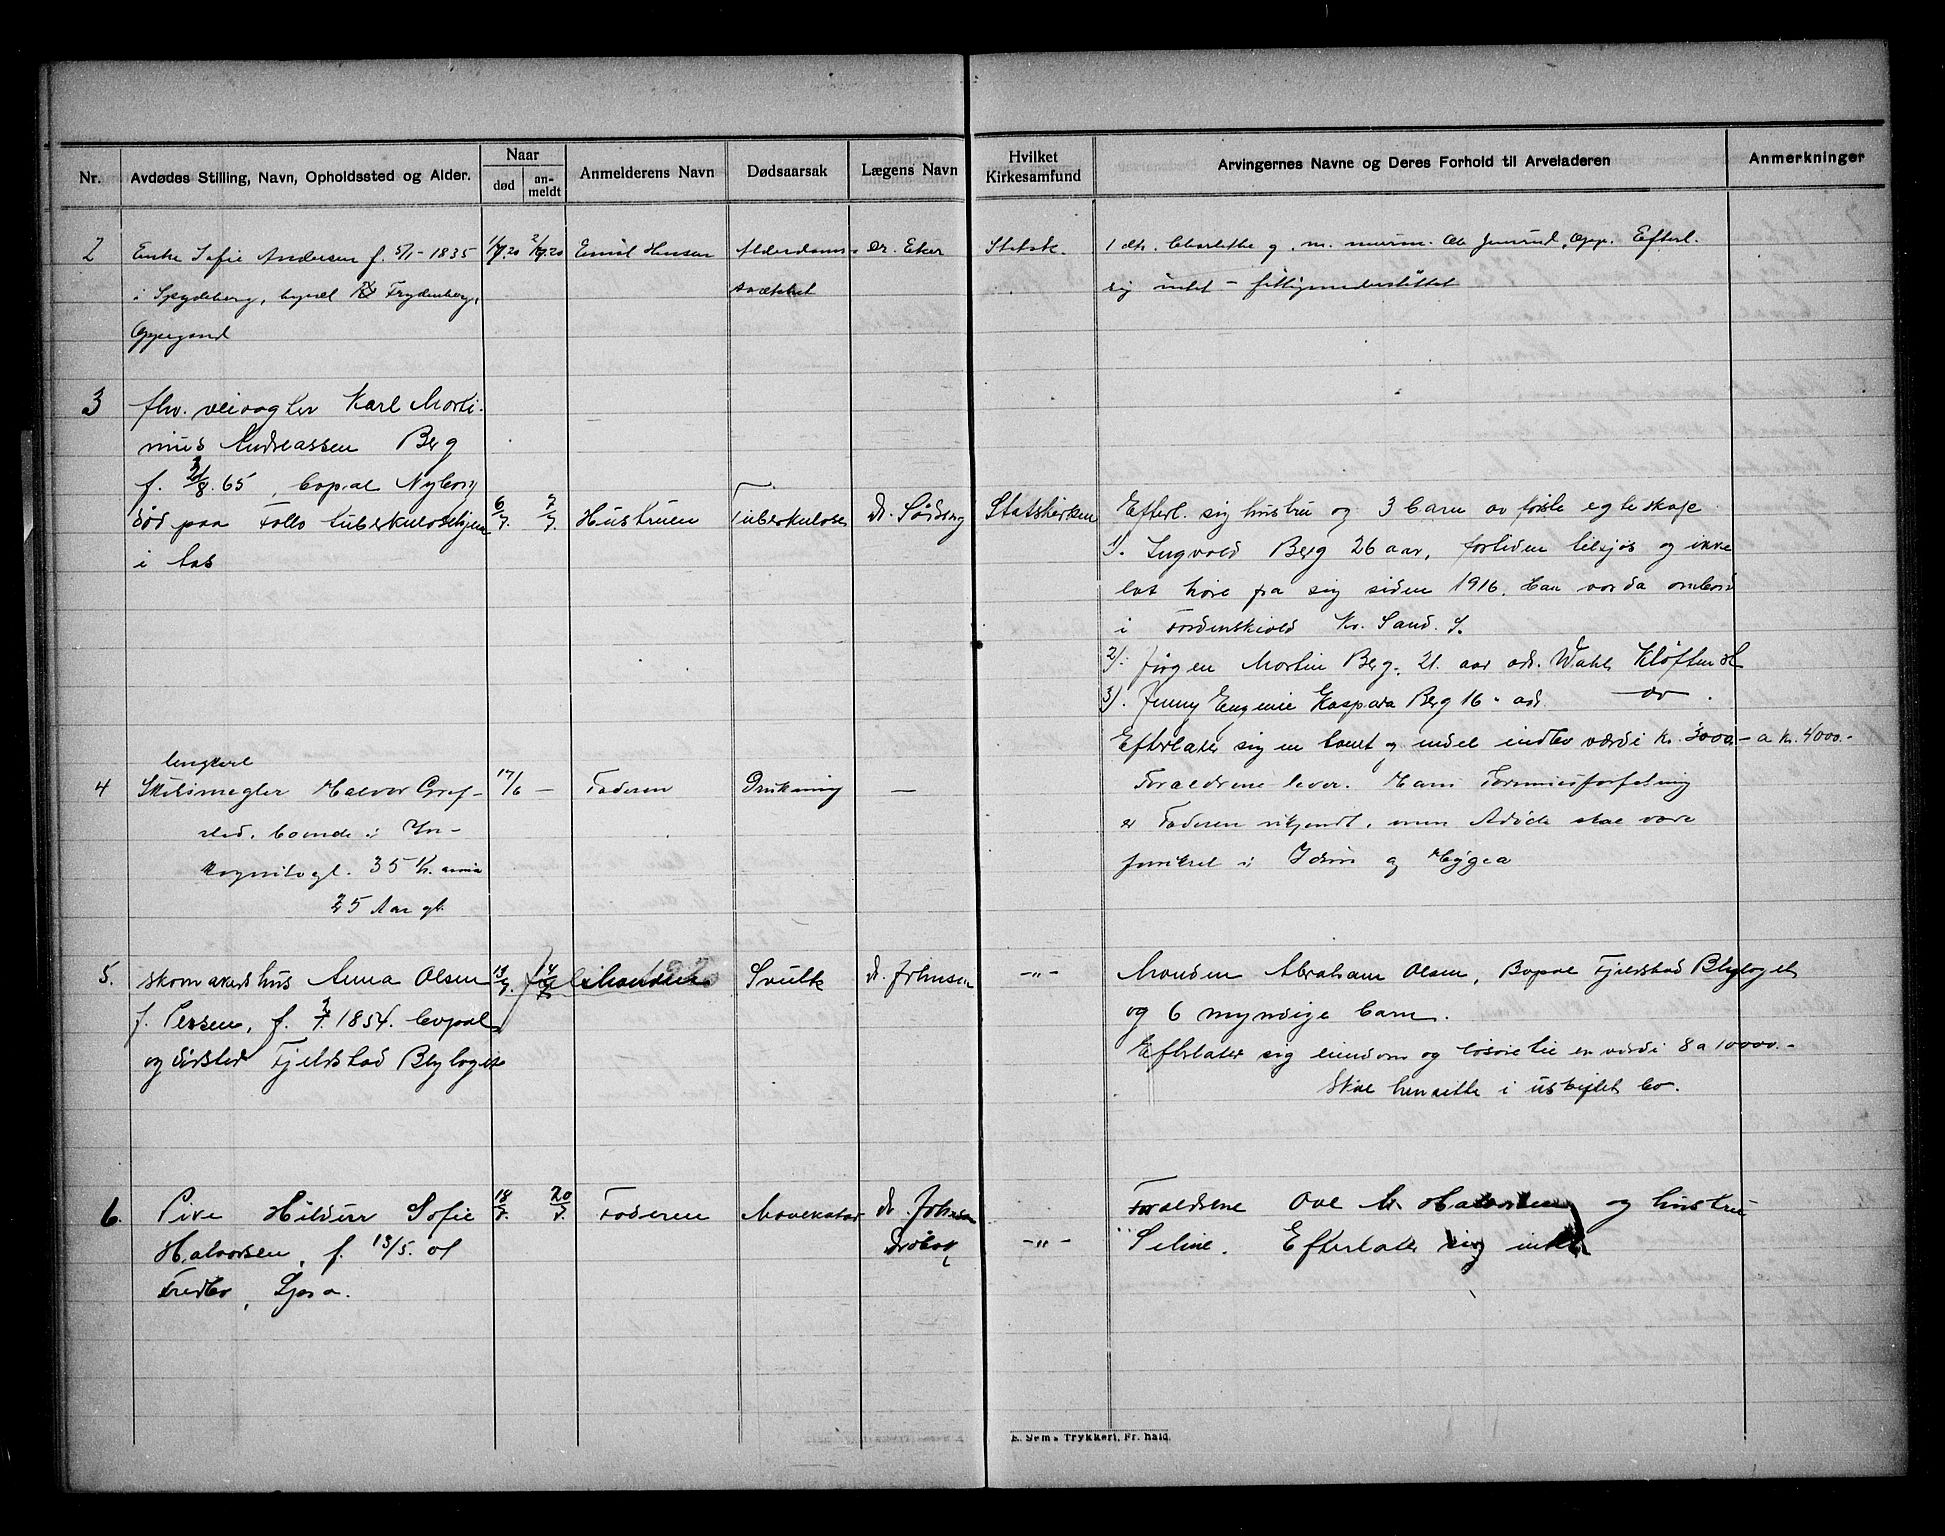 Nr.
Avdødes Stilling, Navn, Opholdssted og Alder.
Naar
død
an-
meldt
Anmelderens Navn
Dødsaarsak
Lægens Navn
Hvilket
Kirkesamfund
Arvingernes Navne og Deres Forhold til Arveladeren
Anmerkninger
2
Enke Sofie Andersen f. 5/1-1835
i Spydeberg, bopæl Frydenberg,
Oppegaard
Emil Hansen
Alderdoms-
svækket
Dr. Eker
Statsk.
1 dtr. Charlotte g. m. murm. Opp. Efterl.
sig intet - fattigunderstøttet
3
fhv. veivogter Karl Marti-
nius Andreassen Berg
f. 8.65, bopæl Nyborg
død paa Follo tuberkulosehjem
i Aas
6/7.
7/7.
Hustruen
Tuberkulose
Dr. Sødring
Statskirken
Efterl. sig hustru og 3 barn av første egteskap.
1). Ingvald Berg 26 aar, fortiden tilsjøs og ikke
lat høre fra sig siden 1916. Han var da ombord
i Tordenskiold Kr. Sand. S.
2). Jørgen Martin Berg, 21. aar adr. Klöften st
3). Jenny Eugenie Kaspara Berg 16 " adr. — do — .
Efterlater sig en tomt og endel indbo værdi kr. 3000.- a kr. 4000.-
4
ungkarl
Skibsmegler Halvor Gref-
sted, boende i In-
kognitogt. 35 Kr.ania
25 Aar gl.
17/6
—
Faderen
Drukning
—
Forældrene lever. Hans Formuesforfatning
er Faderen ukjendt, men Avdøde skal være
forsikret i Idun og Hygea
5.
Skomakerhus Anna Olsen
f. Persen, f. 1854. bopæl
og dødsted Fjeldstad Blylaget
13/7.
14/7
Manden
Svulst
Dr. Johnsen
—"—
Manden Abraham Olsen, Bopæl Fjeldstad Blylaget
og 6 myndige barn.
Efterlater sig eiendom og løsøre til en værdi 8 a 10000.-
Skal hensitte i uskiftet bo.
6.
Pike Hildur Sofie
Halvorsen, f. 13/5. 01
Fredbo,
18/7.
20/7.
Faderen
Dr. Johnsen
Drøbak
—"—
Forældrene Ole Halvorsen og hustru
Seline. Efterlater sig intet
E. Sem's Trykkeri, Fr.hald.